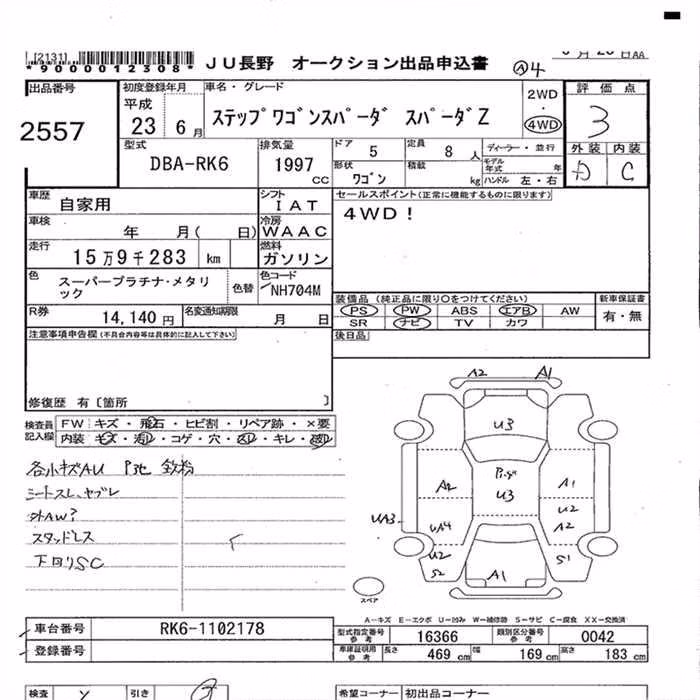 [2131]
*9000012308*
JU長野 オークション出品申込書
Ⓐ4
AA
出品番号
2557
初度登録年月
平成
23 6月
車名・グレード
ステップワゴンスパーダ スパーダZ
2WD
・
4WD
評価点
3
外装 内装
D C
型式
DBA-RK6
排気量
1997
CC
ドア
5
定員
8人
ディーラー・並行
形状
ワゴン
積載
kg
モデル年式 年
ハンドル 左・右
車歴
自家用
シフト
IAT
セールスポイント(正常に機能するものに限ります)
4WD!
車検
年 月( 日)
冷房
WAAC
走行
15万9千283 km
燃料
ガソリン
色
スーパープラチナ・メタリック
色替
色コード
NH704M
R券
14,140円
名変通知期限
月 日
装備品(純正品に限り○をつけてください)
PS PW ABS エアB AW
SR ナビ TV カワ
新車保証書
有・無
注意事項申告欄(不具合内容等は具体的に記入して下さい)
後日品
修復歴 有〔箇所 〕
検査員記入欄
FW キズ・飛石・ヒビ割・リペア跡・×要
内装 キズ・汚レ・コゲ・穴・スレ・キレ・破レ
各小キズAU P他 鉄粉
シートスレ、ヤブレ
外AW?
スタッドレス
下回りSC
A2 A1
U3
U3
A2 A1
U2
A2
UA3
UA4
U2
S2
S1
A1
スペア
A−キズ E−エクボ U−凹み W−補修跡 S−サビ C−腐食 XX−交換済
車台番号
RK6-1102178
登録番号
型式指定番号
参考
16366
類別区分番号
参考
0042
車庫証明用
参考
長さ 469 cm 幅 169 cm 高さ 183 cm
検査
引き
希望コーナー
初出品コーナー